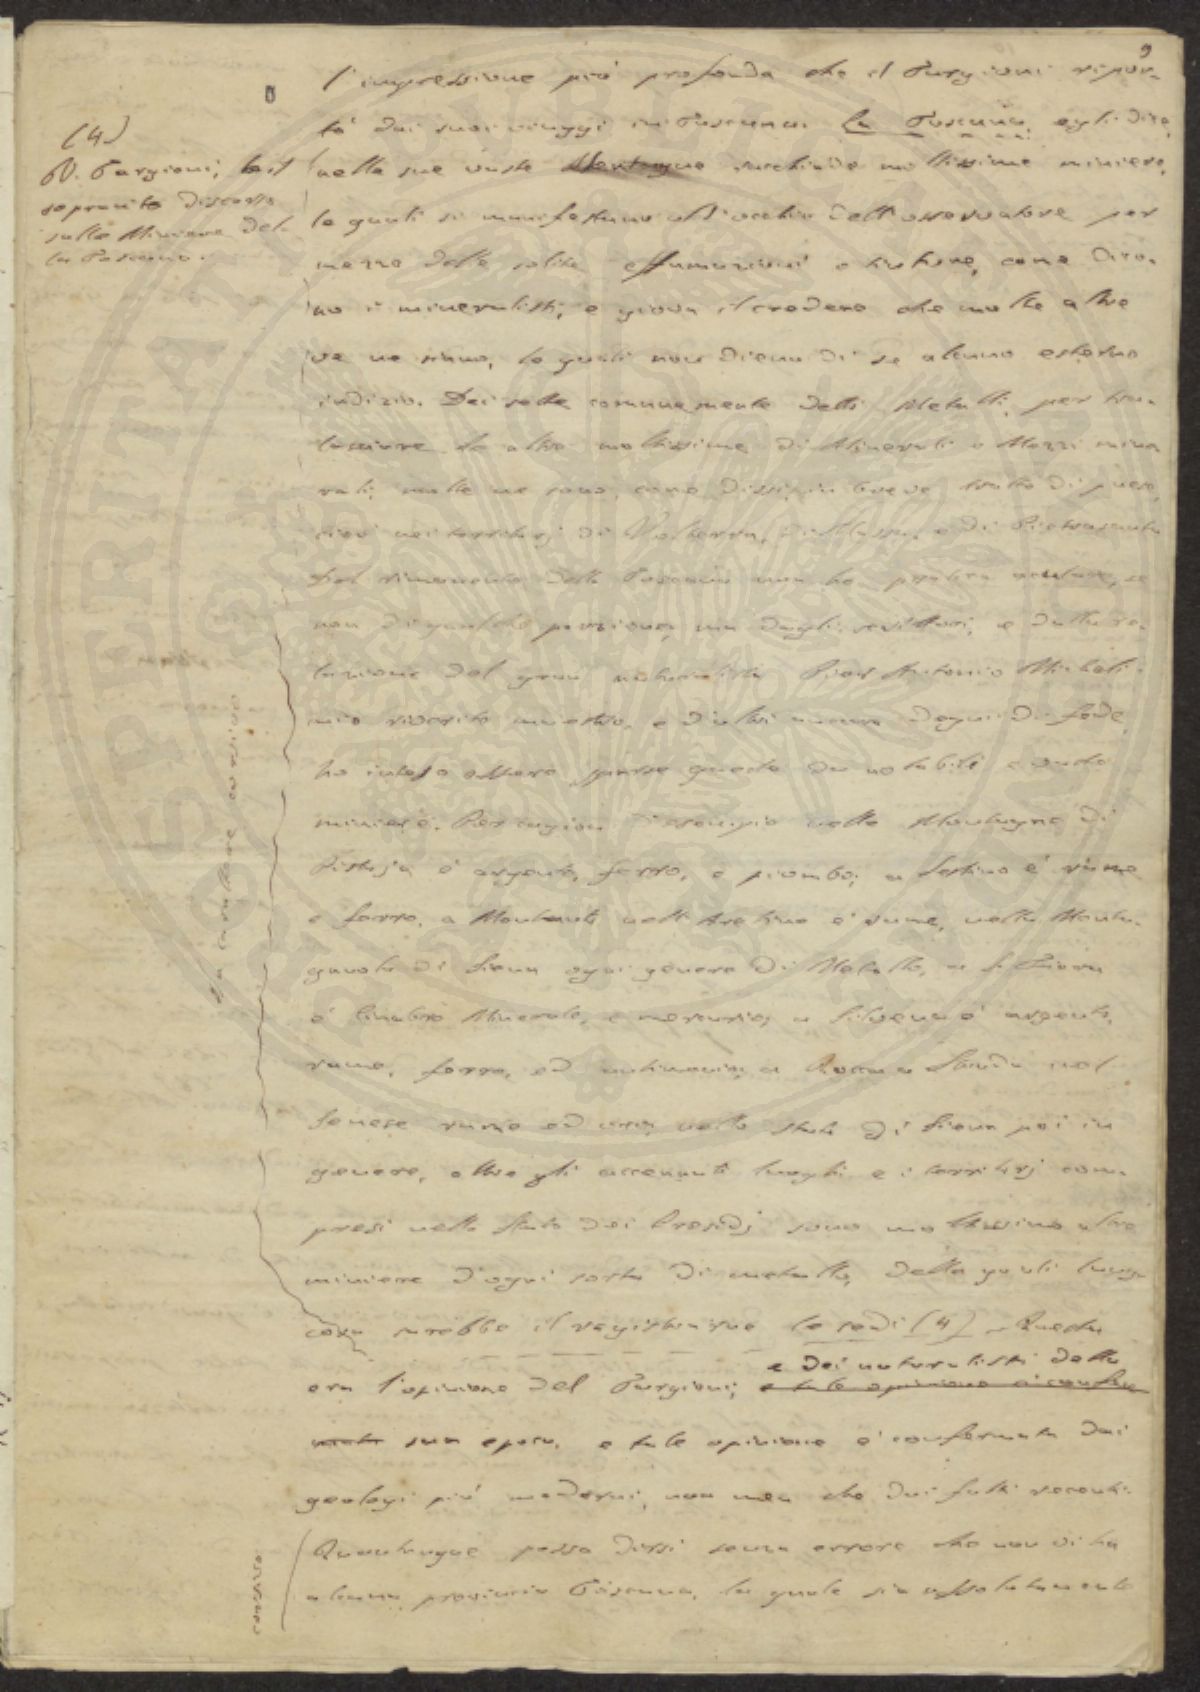 9
l'impressione più profonda che il Targioni ripor-
tò dai suoi viaggi in Toscana. La Toscana, egli dice,
nelle sue vaste Montagne racchiude moltissime miniere,
le quali si manifestano all'occhio dell'osservatore per
mezzo delle solite effumazioni o tinture, come dico-
no i mineralisti; e giova il credere che molte altre
ve ne siano, le quali non dieno di se alcuno esterno
indizio. Dei sette comunemente detti Metalli, per tra-
lasciare le altre moltissime di Minerali o Mezzi mine
rali, molte ne sono, come dissi, in breve tratto di paese,
cioè nei territorj di Volterra, di Massa, e di Pietrasanta
Del rimanente della Toscana non ho potuto, se
non di qualche porzione, ma dagli scrittori, e dalla re-
lazione del gran naturalista Pier Antonio Micheli
mio riverito maestro, e d'altri ancora degni di fede,
ho inteso essere sparse quà e là notabili e vaste
miniere. Per cagion d'esempio nelle Montagne di
Pistoja è argento, ferro, e piombo; a Sestino è rame
e ferro, a Montauti nell'Aretino è rame, nella Monta-
gnuola di Siena ogni genere di Metallo, a S. Fiora
è Cinabro Minerale, e mercurio; a Silvena è argento,
rame, ferro, ed antimonio; a Rocca Strada nel
Senese rame ed oro; nello stato di Siena poi in
genere, oltre gli accennati luoghi e i territorj com-
presi nello Stato dei Presidj sono moltissime altre
miniere d'ogni sorta di metallo, delle quali lunga
cosa sarebbe il registrarne le sedi (4). Questa
e dei naturalisti della
era l'opinione del Targioni; e tale opinione è confer
mata sua epoca, e tale opinione è confermata dai
geologi più moderni, non men che dai fatti recenti.
Quantunque possa dirsi senza errore che non vi ha
alcuna provincia Toscana, la quale sia assolutamente
(4)
V. Targioni,
sopracito Discorso
sulle Miniere del-
la Toscana.
In carattere corsivo
corsivo